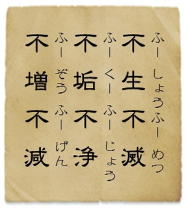 不生不滅
ふーしょうふーめつ
不垢不浄
ふーくーふーじょう
不増不減
ふーぞうふーげん